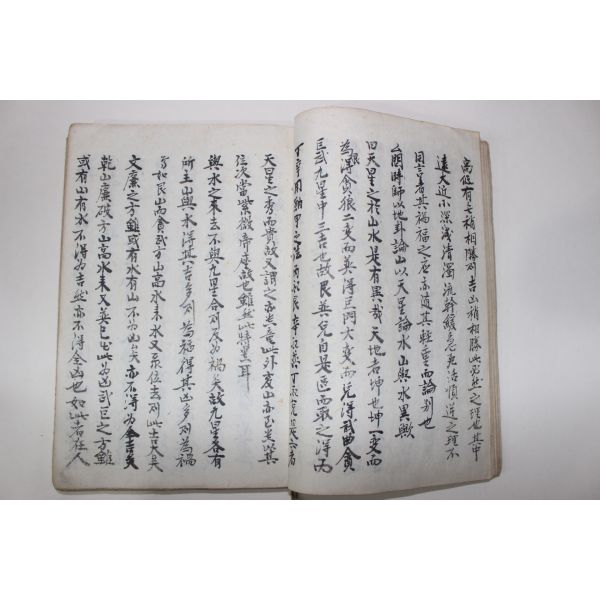 高低有七稍相勝則吉凶稍相勝此必然之理也其中
遠大近小深淺清濁流幹緩急死活順逆之理不
同言者其禍福之應亦適其輕重而論別也
問時師以地卦論山以天星論水山與水異歟
曰天星之於山水是有異哉天地者坤也坤一變而
為得貪狼二變而巽得巨門大變而兌得武曲貪
巨武九星中三吉也故艮巽兌自是區而取之得為
天星之秀而貴故又謂之亦吉此外庚山亦吉以其
位次當紫微帝座故也雖然此特星耳
與水之來去不與九星合則反為禍矣故九星各有
所主山與水得其吉多則為福得其凶多則為禍
若如艮山而貪武方山高水來水又泉位去則此吉矣
文廉之方雖或有水有山不為凶矣亦不得為全吉矣
乾山廉破方山高水來又巽巳此為凶武巨之方雖
或有山有水不得為吉然亦不得全凶也如此者在人